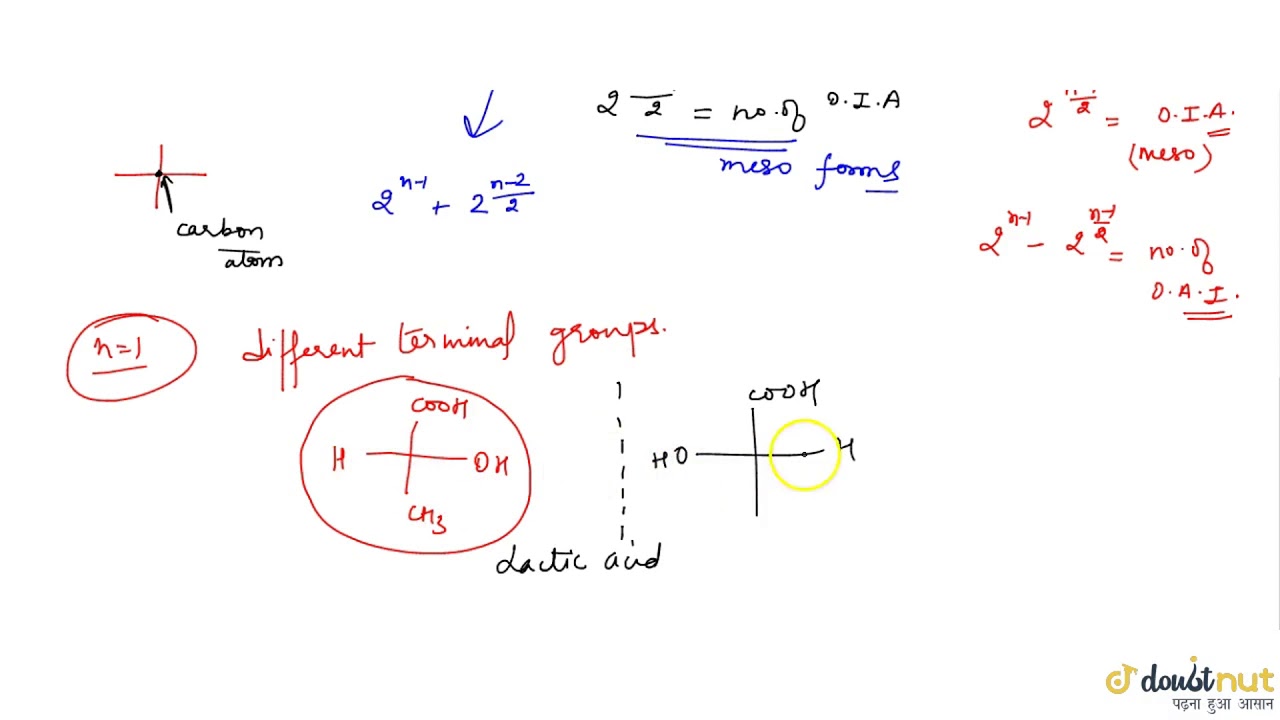 2^(‾/2) = no. of O.I.A
meso forms
2^(n-1) + 2^((n-2)/2)
2^(/2) = O.I.A.
(meso)
2^(n-1) - 2^((n-1)/2) = no. of
O.A.I.
carbon
atom
n=1
different terminal groups.
COOH
H OH
CH3
COOH
HO H
Lactic acid
doubtnut
पढ़ना हुआ आसान